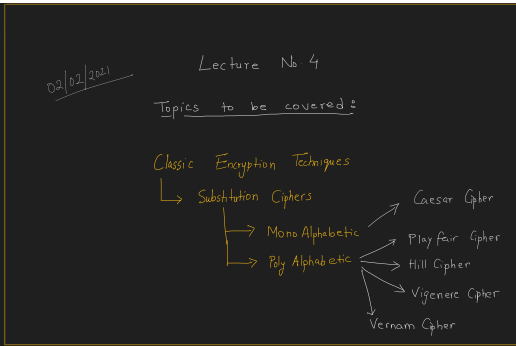 02/02/2021
Lecture No. 4
Topics to be covered:
Classic Encryption Techniques
Substitution Ciphers
Mono Alphabetic
Poly Alphabetic
Caesar Cipher
Playfair Cipher
Hill Cipher
Vigenere Cipher
Vernam Cipher